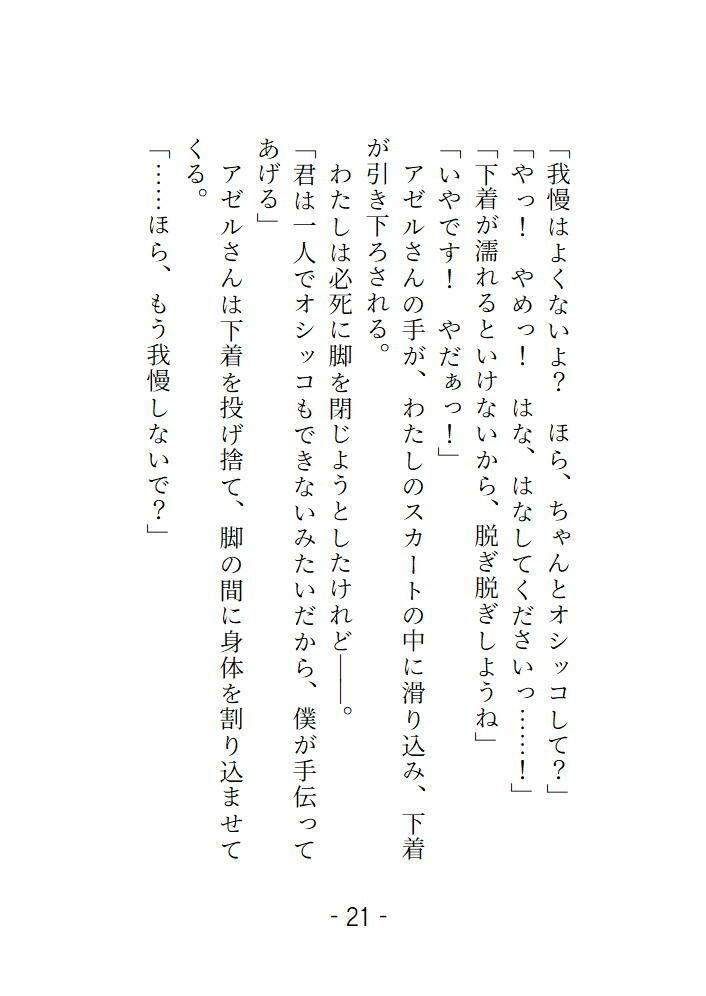 「我慢はよくないよ？　ほら、ちゃんとオシッコして？」
「やっ！　やめっ！　はな、はなしてくださいっ……！」
「下着が濡れるといけないから、脱ぎ脱ぎしようね」
「いやです！　やだぁっ！」
　アゼルさんの手が、わたしのスカートの中に滑り込み、下着
が引き下ろされる。
　わたしは必死に脚を閉じようとしたけれど――。
「君は一人でオシッコもできないみたいだから、僕が手伝って
あげる」
　アゼルさんは下着を投げ捨て、脚の間に身体を割り込ませて
くる。
「……ほら、もう我慢しないで？」
- 21 -